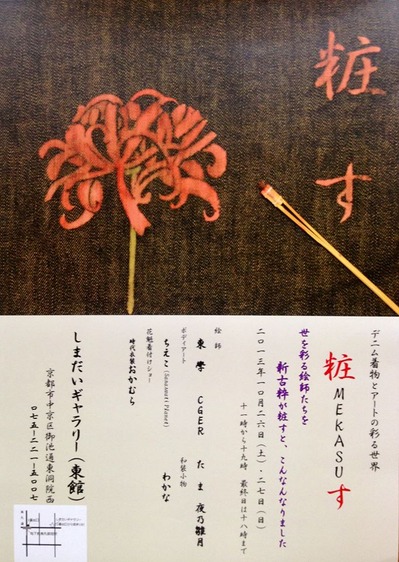 粧す
デニム着物とアートの彩る世界
粧 MEKASU す
世を彩る絵師たちを
新古粋が粧すと、こんなんなりました
二〇一三年一〇月二六日（土）・二七日（日）
十一時から十九時 最終日は十八時まで
絵師
東學 CGER たま 夜乃雛月
ボディアート
ちえこ
和装小物
わかな
花魁着付けショー
時代衣裳おかむら
しまだいギャラリー（東館）
京都市中京区御池通東洞院西
〇七五-二二一-五〇〇七